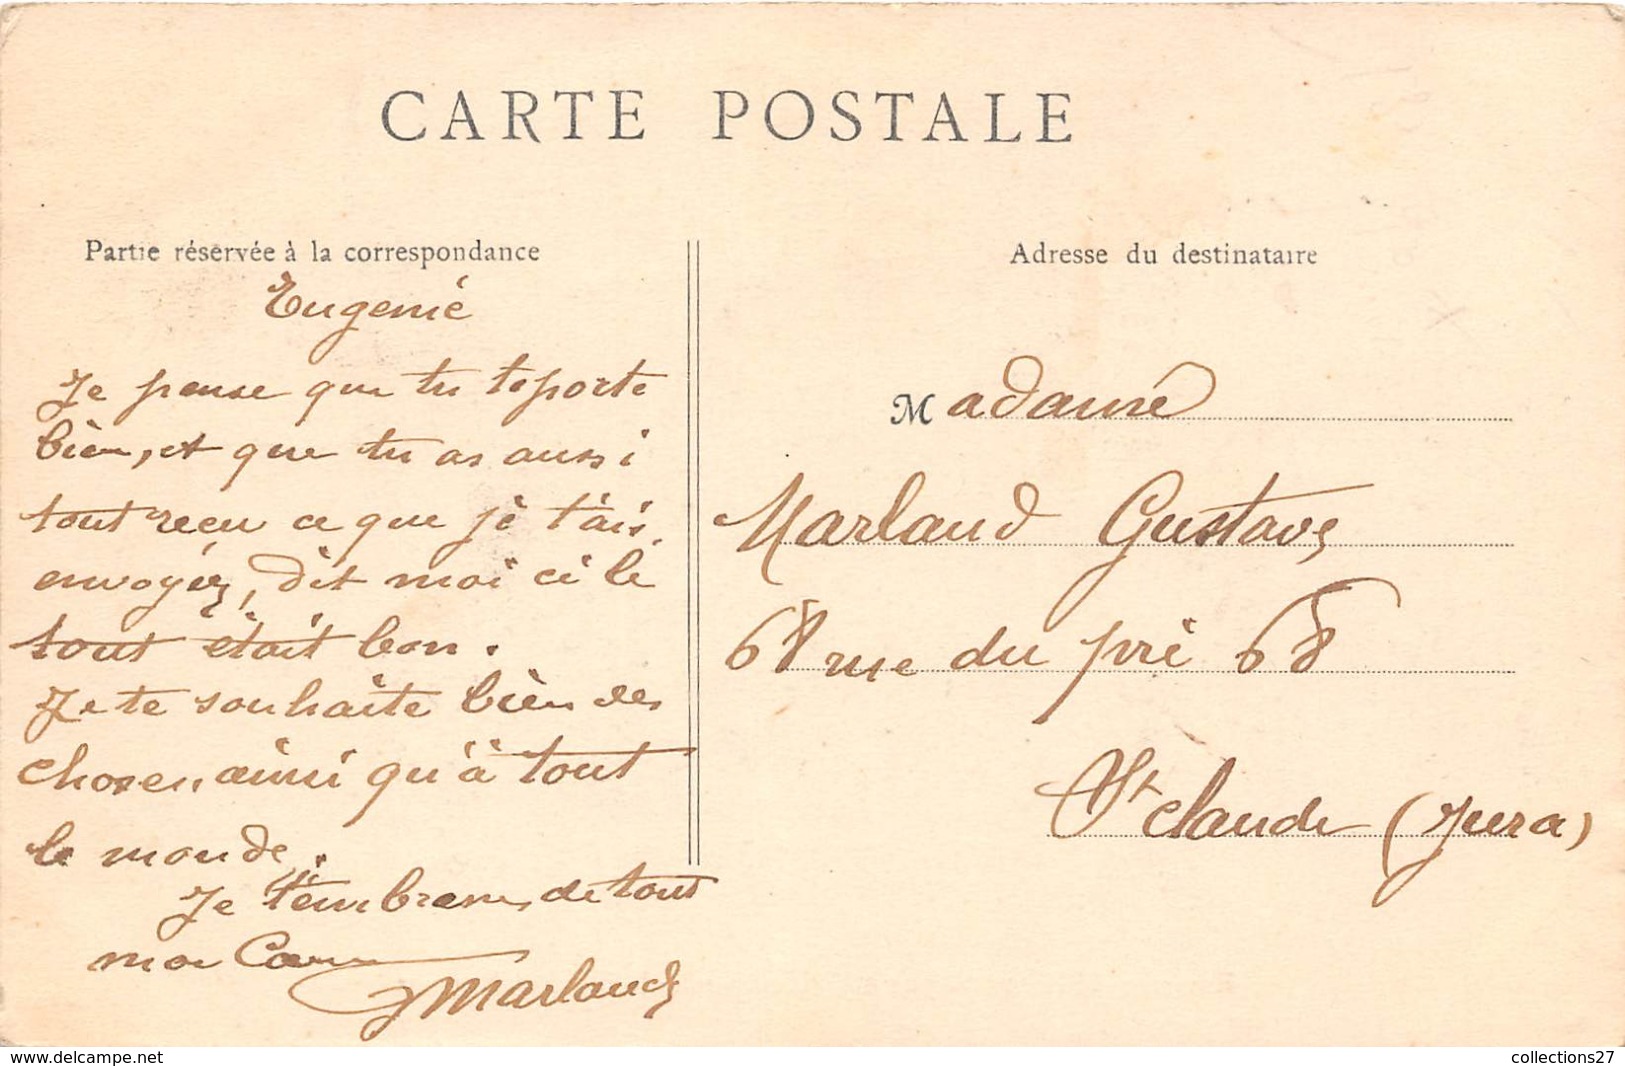 CARTE POSTALE
Partie réservée à la correspondance
Eugenie
Je pense que tu te porte
bien, et que tu as aussi
tout recu ce que je t'ais
envoyér, dit moi ci le
tout était bon.
Je te souhaite bien des
choses, ainsi qu'à tout
le monde.
Je t'embrasse, de tout
mon Cœur
Marland
Adresse du destinataire
Madame
Marland Gustave
68 rue du pré 68
St Claude (Jura)
www.delcampe.net
collections27